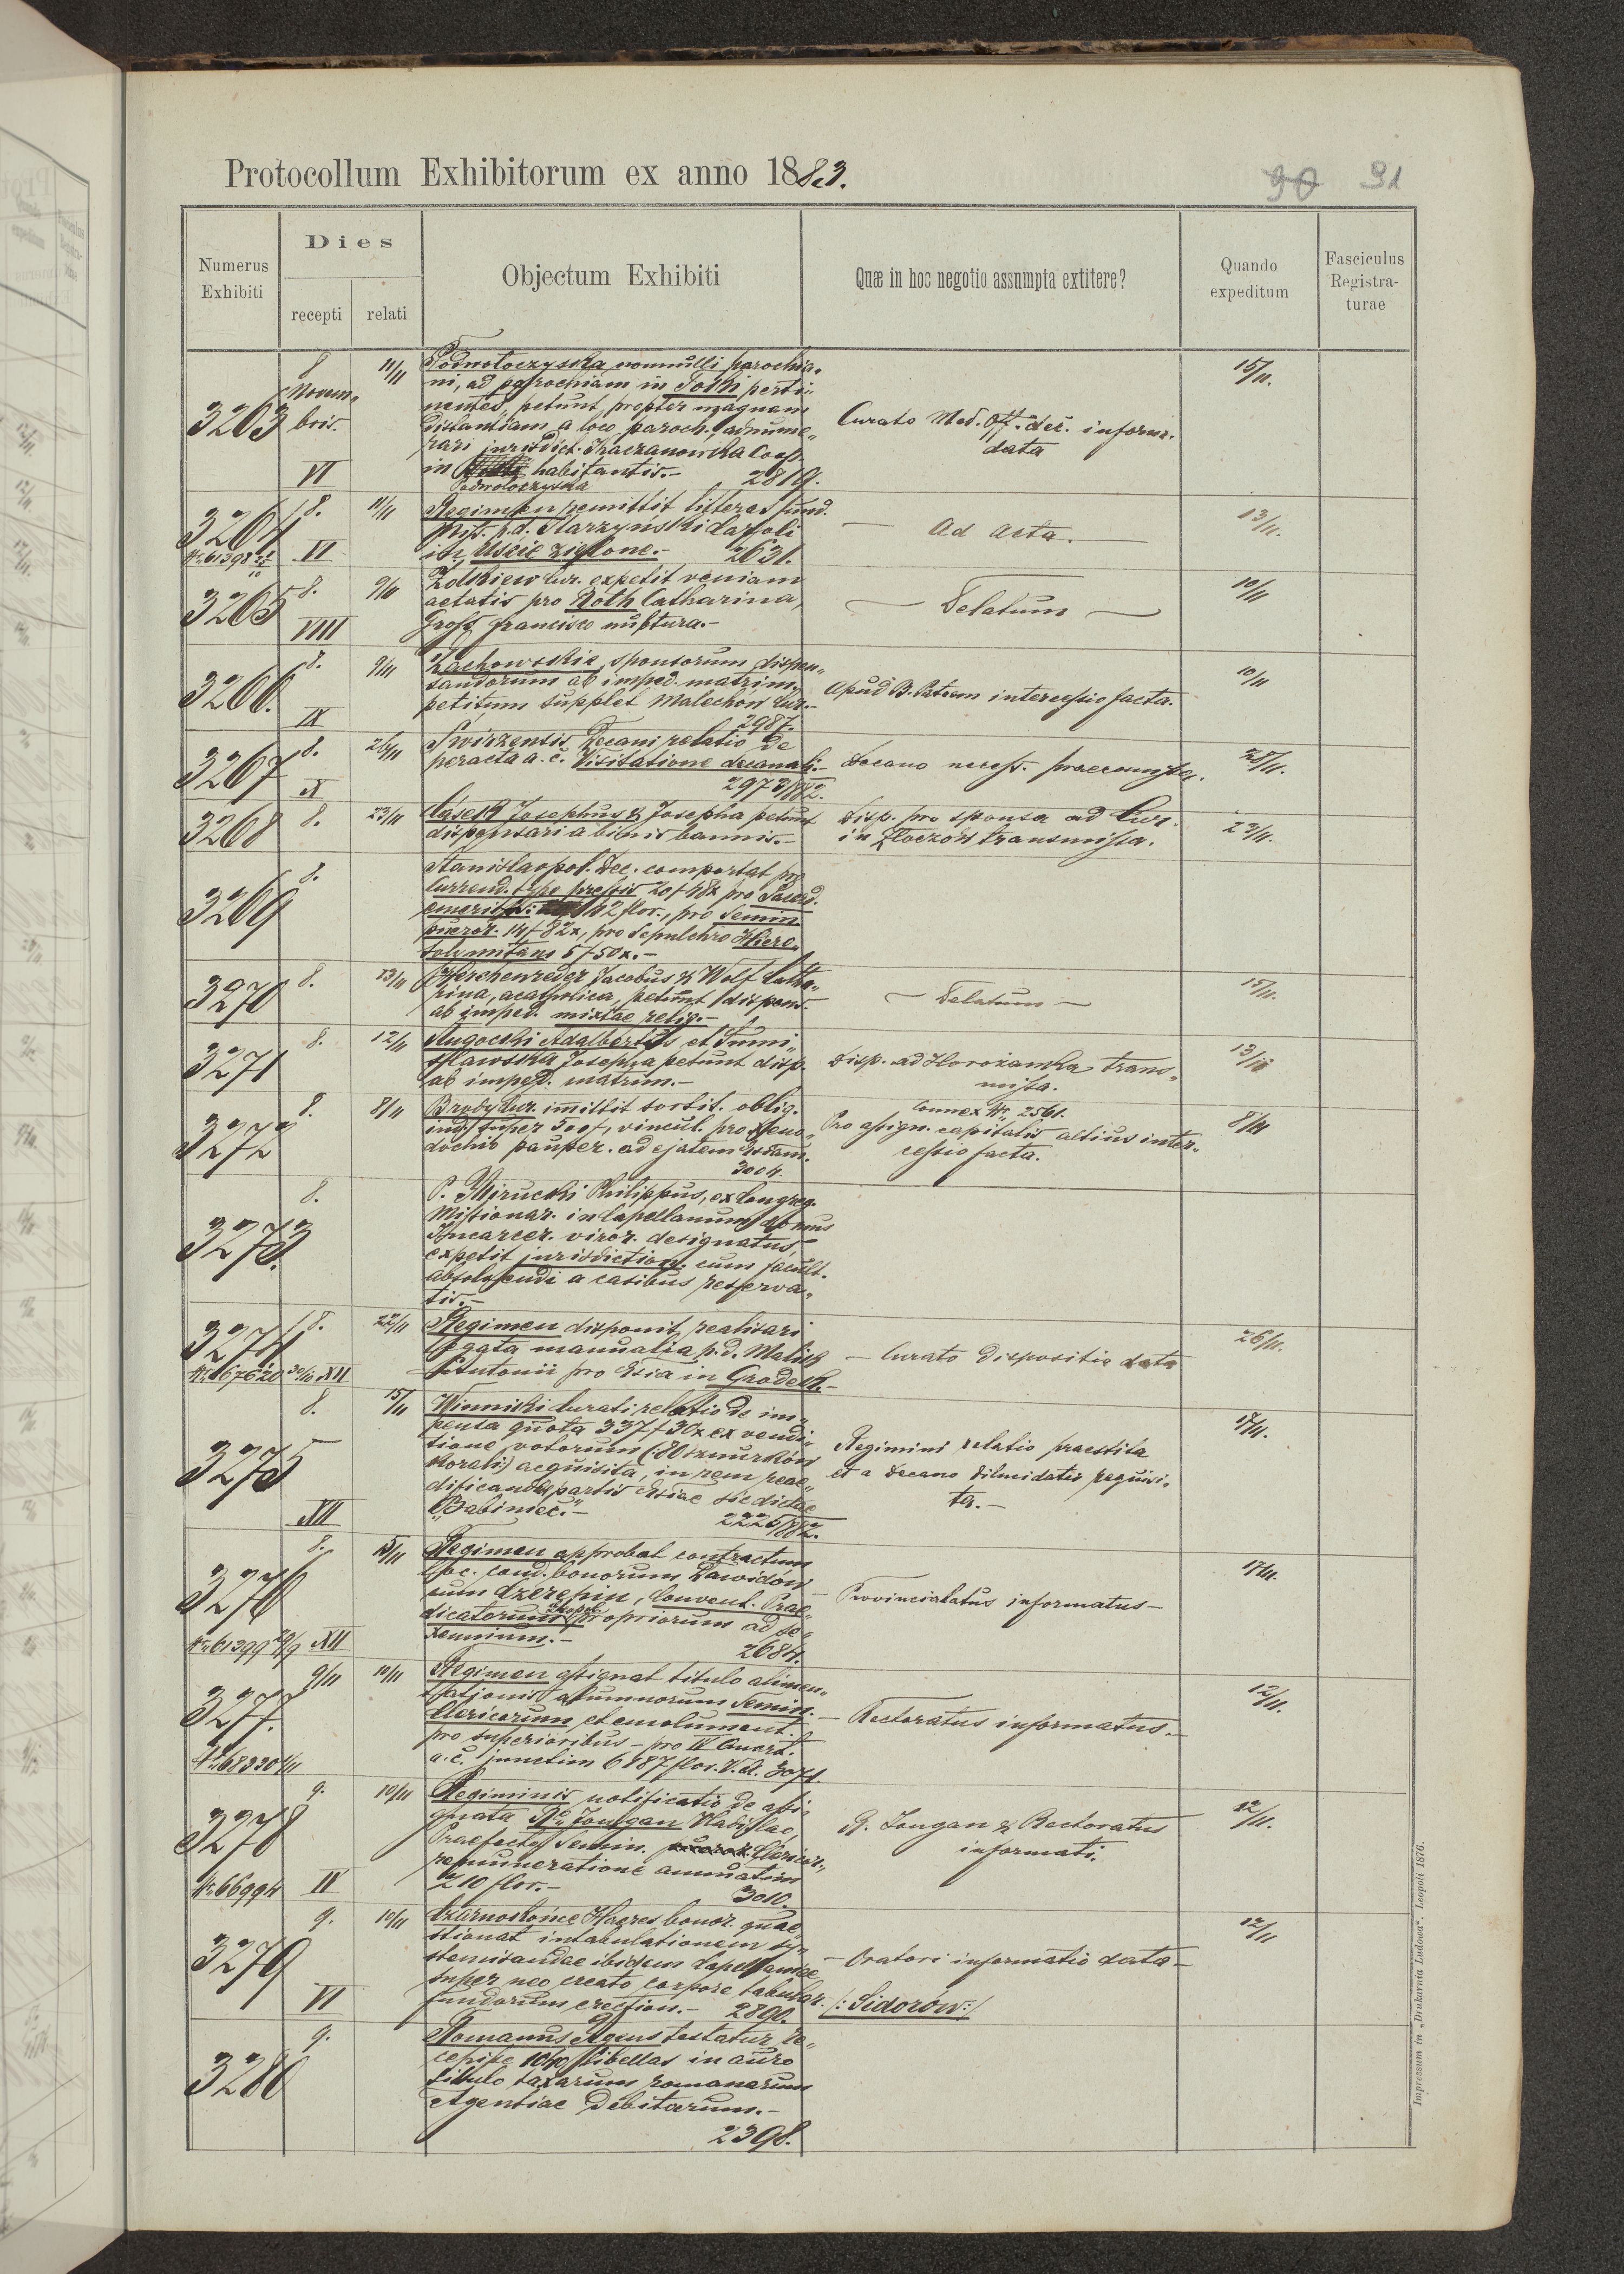 Protocollum Exhibitorum ex anno 1883.
90 91
Numerus Exhibiti
Dies
recepti
relati
Objectum Exhibiti
Quæ in hoc negotio assumpta extitere?
Quando expeditum
Fasciculus Registra-turae
3263
8 Novem„ bris.
VI
11/11
Podwołoczyska nonnulli parochia„
ni, ad parochiam in Toki perti„
nentes, petunt, propter magnam
distantiam a loco paroch., adnume„
rari jurisdict. Kaczanowka Coop.
in habitantis.-
Podwołoczyska
2819.
Curato Med. Off. dec. inform.
data
15/11.
3264
8.
VI
11/11
Regimen remittit litteras fund.
Miss. p.d. Starzyński Caroli
in Uscie zielone.- 2631.
Ad acta.
13/11.
3265
8.
VIII
9/11
Żołkiew Cur. expetit veniam
aetatis pro Roth Catharina,
Gross Francisco nuptura.-
Delatum
10/11
3266.
8.
IX
9/11
sponsorum dispen„
sandorum ab imped. matrim.
petitum supplet Malechów Cur.-
2987.
Apud B. Patrem intercessio facta.
10/11
3267
8.
X
26/11
Swirzensis Decani relatio de
peracta a. c. Visitatione decanali.-
2973/882.
Decano necess. praecustod.
28/11.
3268
8.
23/11
Josephus & Josepha petunt
dispensari a binis bannis.-
Disp. pro sponsa ad Cur.
in Złoczów transmissa.
23/11.
3269
8.
Stanislaopol. Dec. comportat pro
Currend. typo pressis 20 f 48x pro Sacerd.
emeritis: 112 flor., pro Semin
pueror. 14 f 82x, pro Sepulchro Hiero„
solymitano 5 f 50x.-
3270
8.
13/11
Herchenreder Jacobus & Wolf Catha„
rina, acatholica, petunt dispens.
ab imped. mixtae relig.-
Delatum
15/11.
3271
8.
12/11
Ługocki Adalbertus et Tumi„
sławska Josepha petunt disp.
ab imped. matrim.-
Disp. ad Horożanka trans„
missa.
13/11
3272
8.
8/11
Brody Cur. immittit sortit. oblig.
ind. super 500 f, vincul. pro Xeno„
dochio pauper. ad ejatem Eccliam.
3004.
Connex Nr. 2561.
Pro assign. capitalis altius inter„
cessio facta.
8/11
3273.
8.
P. Mirucki Philippus, ex Congreg.
Missionar. in Capellanum domus
Incarcer. viror. designatus,
expetit jurisdiction. cum facult.
absolvendi a casibus reserva„
tis.-
3274
8.
Nr. 67620 XII
22/11
Regimen disponit realisari
legata manualia p. d. Malik
Antonii pro Ecclia in Grodek.-
Curato dispositio data
26/11.
3275
8.
XII
15/11
Winniki Curati relatio de im„
pensa quota 337 f 30x ex vendi„
tione votorum (: 80 sznurków
korali:) acquisita, in rem reae„
dificandae partis Eccliae sic dictae
„Babiniec".-
2225/882.
Regimini relatio praestita
et a Decano dilucidatio requisi„
ta.-
17/11.
3276
8.
Nr. 61399 29/9 XII
15/11
Regimen approbat contractum
loc. cond. bonorum Dawidów
cum Czerepin, Convent. Prae„
dicatorum Leopol. propriorum ad se„
xennium.- 2684.
Provincialatus informatus-
17/11.
3277.
9/11
Nr. 68330
10/11
Regimen assignat titulo alimen„
tationis alumnorum Semin.
Clericorum et emolument.
pro superioribus - pro IV Quart.
a. c. junctim 6187 flor. V. A. 3071.
Rectoratus informatus.-
12/11.
3278
9.
Nr. 66994 II
10/11
Regiminis notificatio de assi„
gnata Rdo Zougan Vladislao,
Praefecto Semin. Clericor.,
remuneratione annuatim
210 flor.- 3010.
R. Zougan & Rectoratus
informati.
12/11.
3279
9.
VI
10/11
Czarnokońce Haeres bonor. quae„
stionat intabulationem sy„
stemisandae ibidem Capellaniae
super neo creato corpore tabular.
fundorum erection.- 2890.
Oratori informatio data-
/: Sidorów:/
12/11
3280
9.
Romanus Agens testatur re„
cepisse 1040 libellas in auro
titulo taxarum romanarum
Agentiae debitarum.-
2398.
Impressum in „Drukarnia Ludowa". Leopoli 1876.